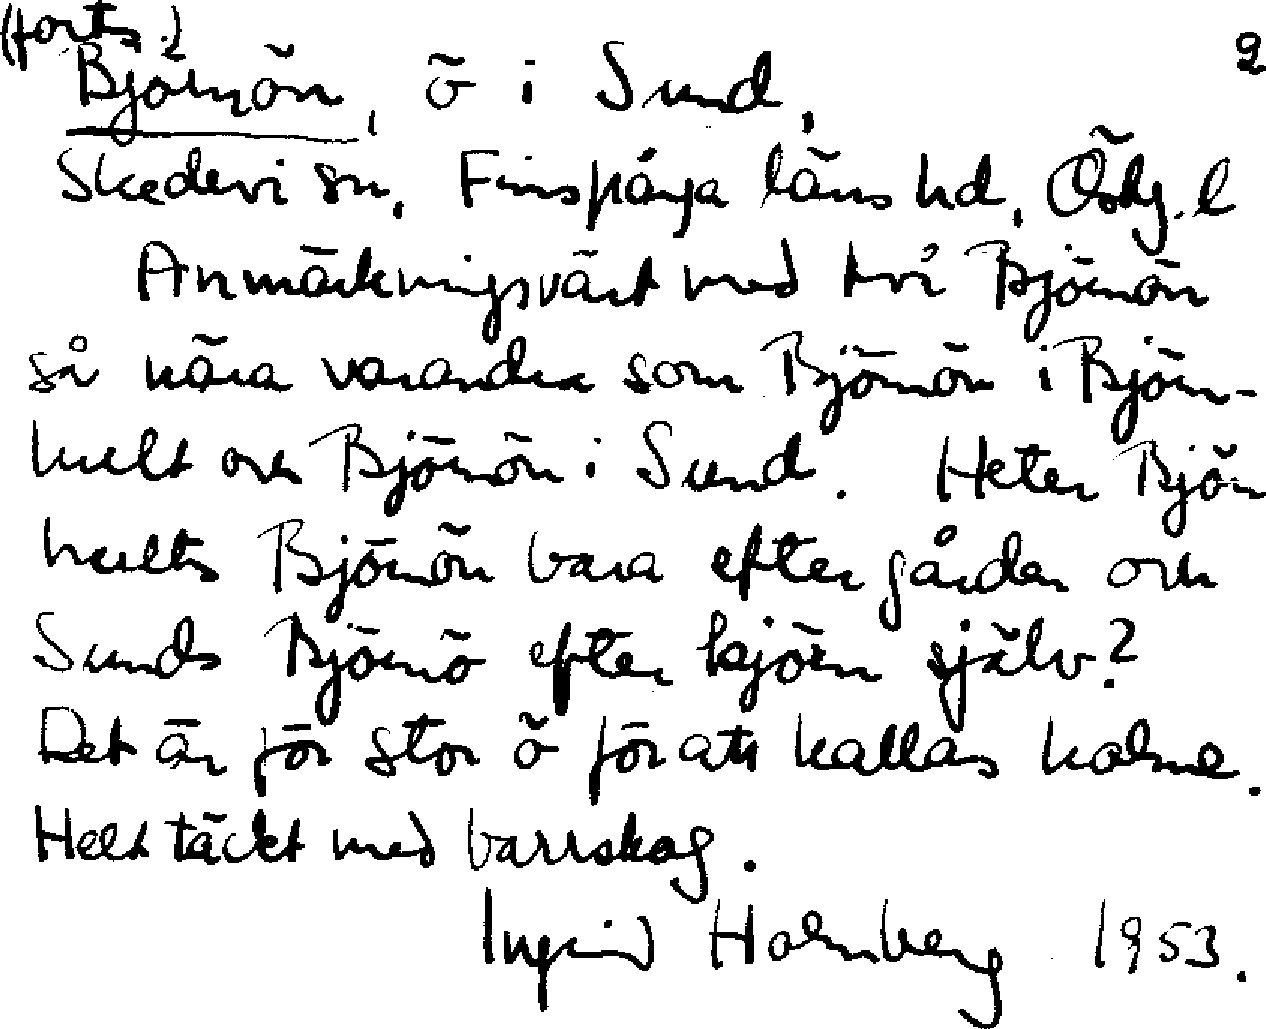 (forts.) 2
Björnön, ö i Sund,
Skedevi sn, Finspånga läns hd, Östg. l
Anmärkningsvärt med två Björnön
så nära varandra som Björnön i Björn-
hult och Björnön i Sund. Heter Björn
hults Björnön bara efter gården och
Sunds Björnö efter björn själv?
Det är för stor ö för att kallas holme.
Helt täckt med barrskog.
Ingrid Holmberg 1953.